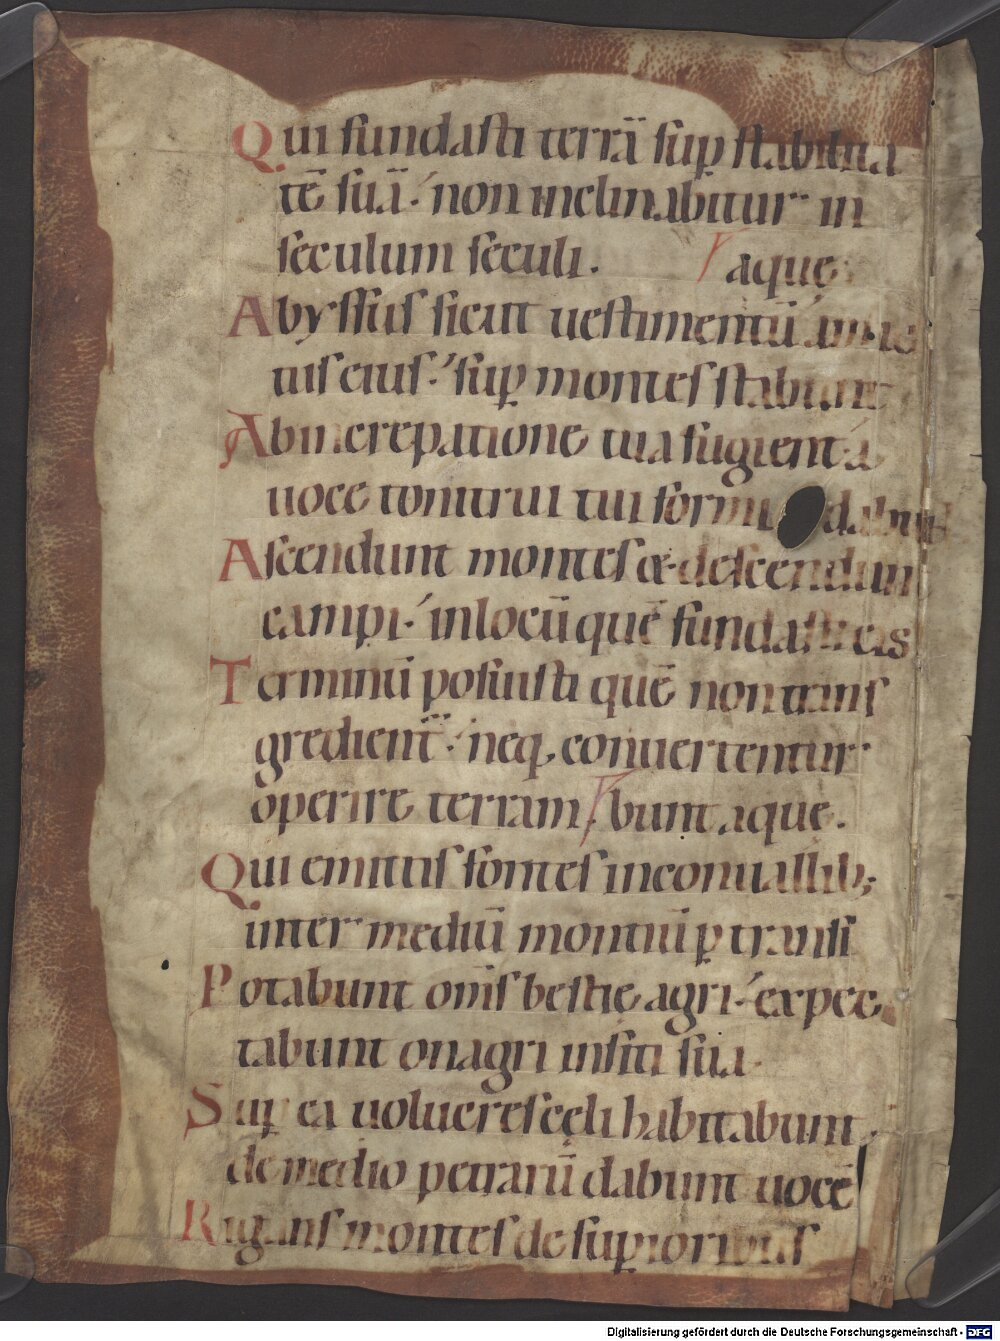 Qui fundasti terrā sup̱ stabilita
tē suā· non inclinabitur in
seculum seculi.
aque
Abyssus sicut uestimentū amic
tus eius· sup̱ montes stabunt
Ab increpatione tua fugient· á
uoce tonitrui tui formi dabunt
Ascendunt montes & descendun
campi· in locū quē fundasti eis
Terminū posuisti quē non trans
gredient᷑· neq, conuertentur
operire terram bunt aque.
Qui emittis fontes in conuallib;
inter mediū montiū p̱transi
Potabunt om̄s bestię agri· expec
tabunt onagri in siti sua·
Sup̱ ea uolucres cęli habitabunt,
de medio petrarū dabunt uocē
Rigans montes de sup̱ioribus
Digitalisierung gefördert durch die Deutsche Forschungsgemeinschaft - DFG